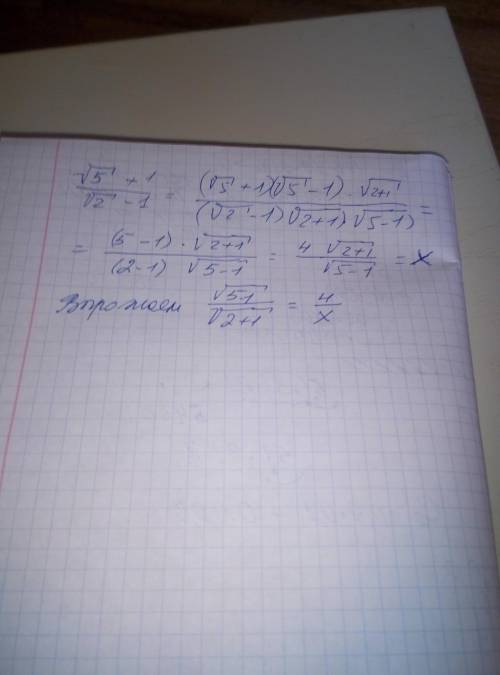 (√5 + 1)/(√2 - 1) = ((√5 + 1)(√5 - 1) · √2+1)/((√2 - 1)(√2+1) √5-1)) =
= ((5 - 1) · √2+1)/((2-1) √5-1) = (4 √2+1)/(√5-1) = x
Вырожаем (√5-1)/(√2+1) = 4/x